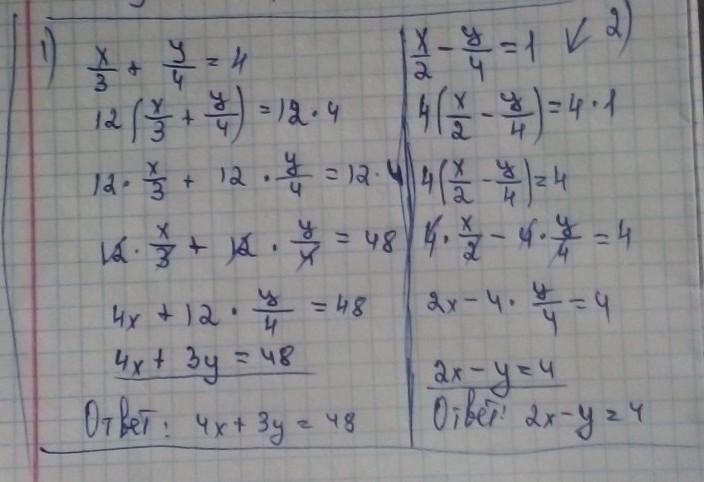 1)
x/3 + y/4 = 4
12(x/3 + y/4) = 12·4
12·x/3 + 12·y/4 = 12·4
12·x/3 + 12·y/4 = 48
4x + 12·y/4 = 48
4x + 3y = 48
Ответ: 4x+3y=48
2)
x/2 - y/4 = 1 ↙
4(x/2 - y/4) = 4·1
4(x/2 - y/4) = 4
4·x/2 - 4·y/4 = 4
2x - 4·y/4 = 4
2x - y = 4
Ответ: 2x-y=4